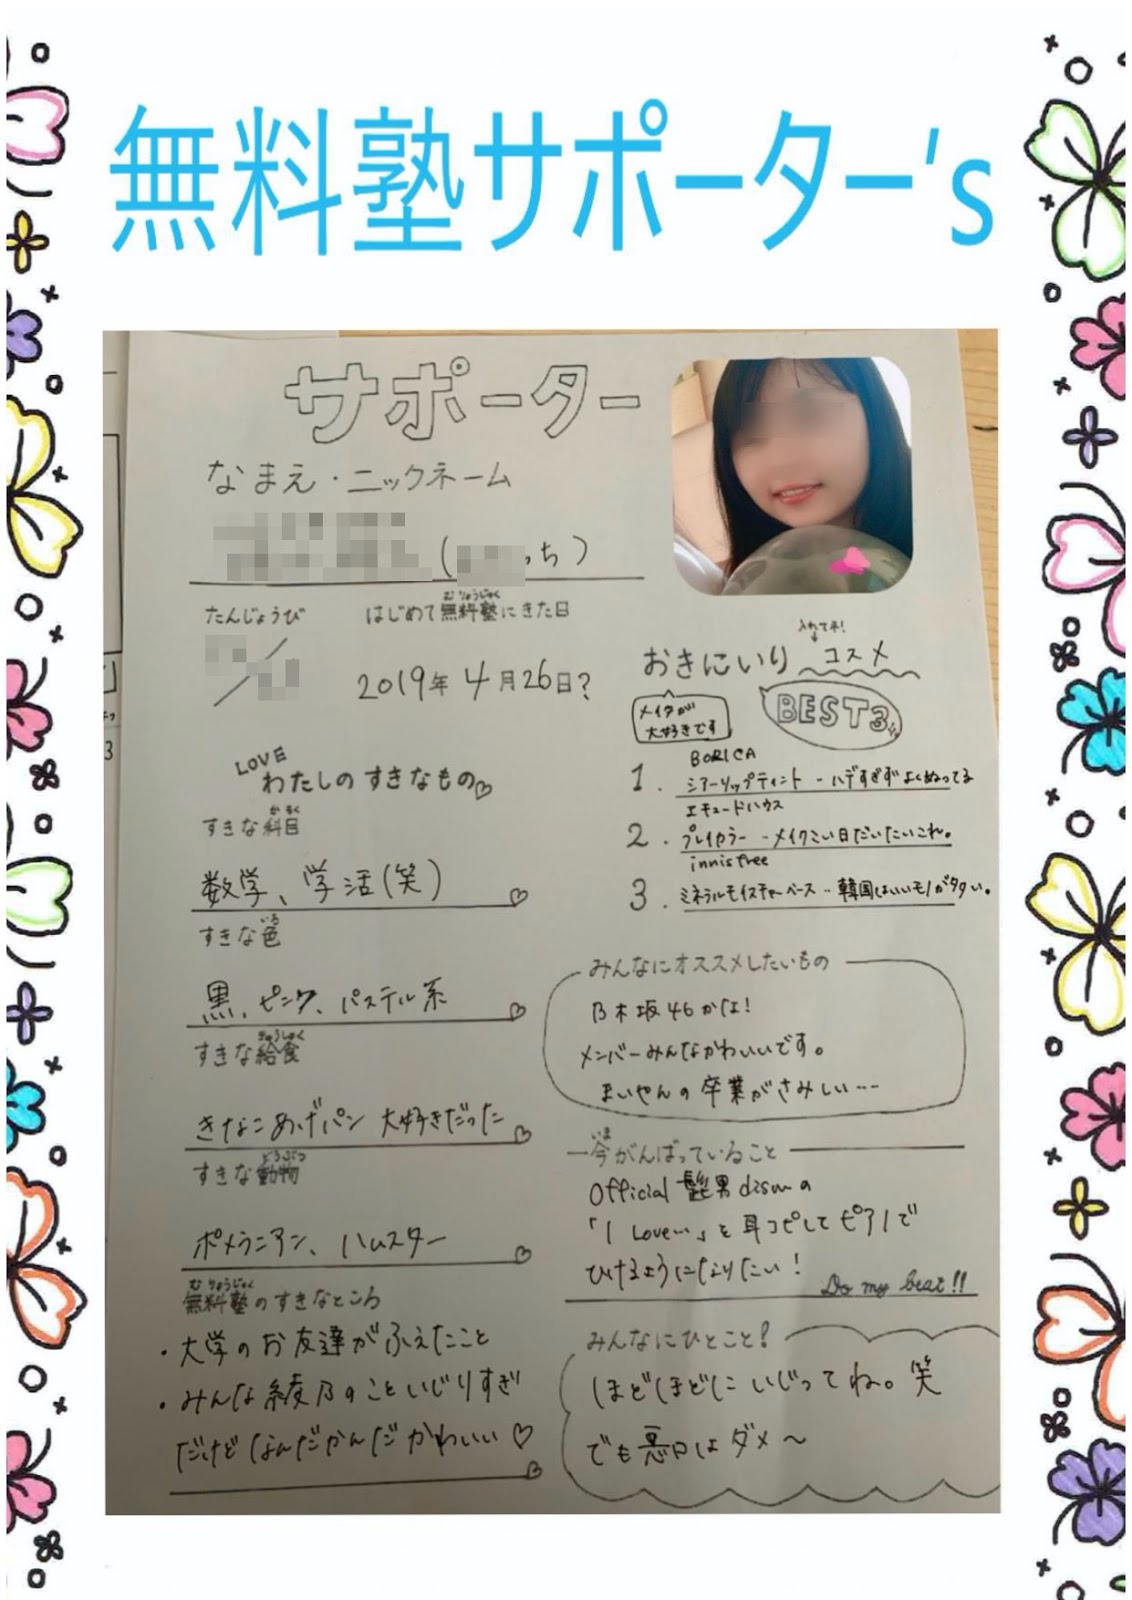 無料塾サポーター's
サポーター
なまえ・ニックネーム
っち)
たんじょうび
はじめて無料塾にきた日
むりょうじゅく
2019年 4月26日?
LOVE
わたしの すきなもの
すきな科目
かもく
数学、学活(笑)
すきな色
いろ
黒、ピンク、パステル系
すきな給食
きゅうしょく
きなこあげパン 大好きだった
すきな動物
どうぶつ
ポメラニアン、ハムスター
むりょうじゅく
無料塾のすきなところ
・大学のお友達がふえたこと
・みんな綾乃のこといじりすぎ
だけどなんだかんだかわいい♡
入れてネ!
おきにいり コスメ
BEST3
メイクが
大好きです
BORICA
1. シアーリップティント - ハデすぎずよくぬってる
エチュードハウス
2. プレイカラー - メイクこい日だいたいこれ。
innisfree
3. ミネラルモイスチャーベース - 韓国はいいモノがタタい。
みんなにオススメしたいもの
乃木坂46かな!
メンバーみんなかわいいです。
まいやんの卒業がさみしい…
いま
今がんばっていること
Official髭男dismの
「I Love…」を耳コピしてピアノで
ひけるようになりたい!
Do my beat!!
みんなにひとこと!
ほどほどにいじってね。笑
でも悪口はダメ〜